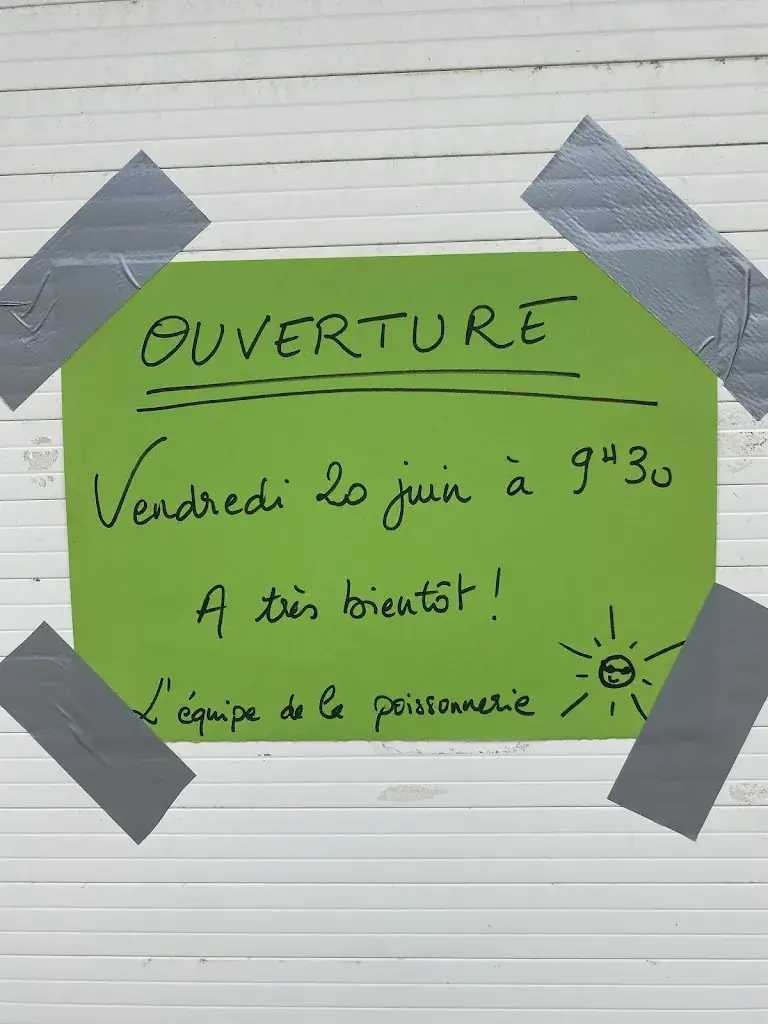 OUVERTURE
Vendredi 20 juin à 9H30
A très bientôt !
L'équipe de la poissonnerie